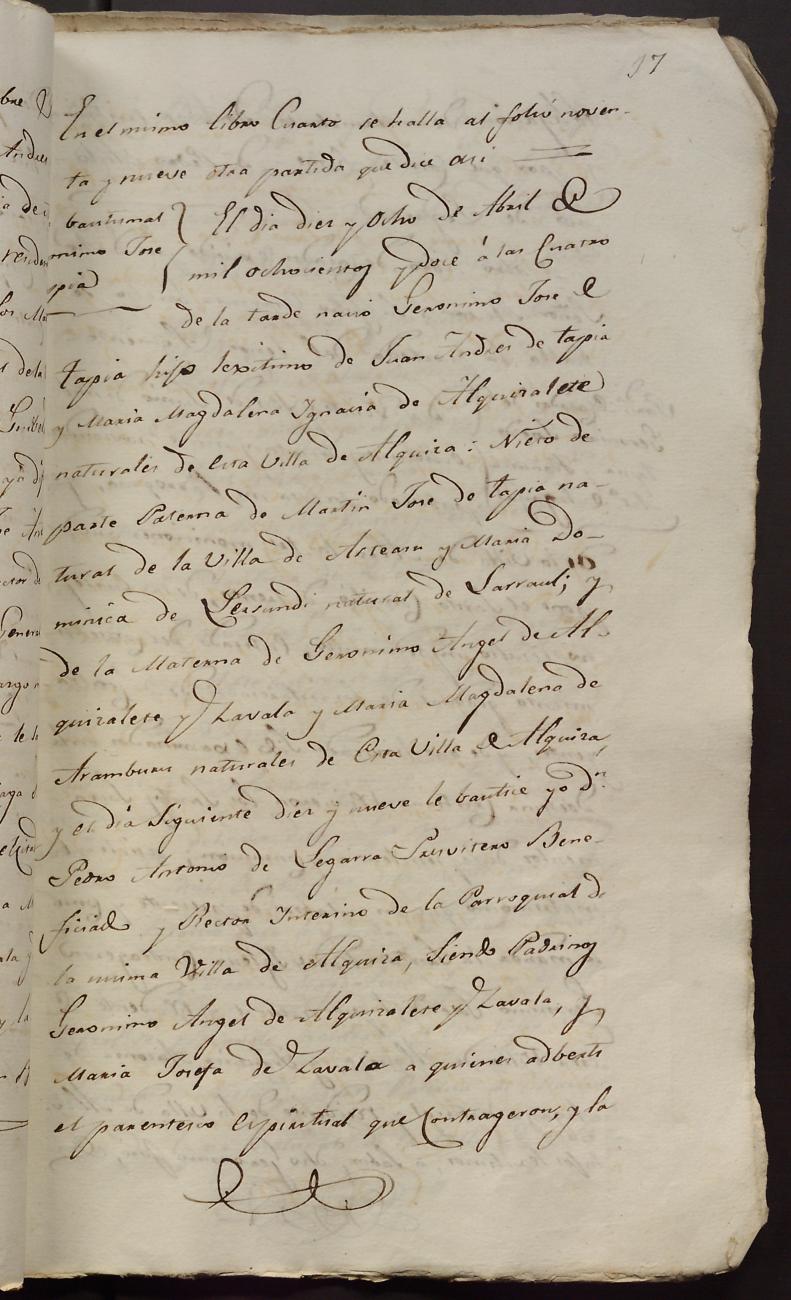 17
En el mismo libro Cuarto se halla al folio noven-
ta y nueve otra partida que dice asi =
bautismal
mimo Jose
pia
El dia diez y Ocho de Abril de
mil ochocientos y doce á las Cuatro
de la tarde nacio Geronimo Jose de
tapia hijo lexitimo de Juan Andres de tapia
y Maria Magdalena Ignacia de Alquizalete
naturales de esta Villa de Alquiza: Nieto de
parte Paterna de Martin Jose de tapia na-
tural de la Villa de Asteasu y Maria Do-
minica de Lersundi natural de Larraul; y
de la Materna de Geronimo Angel de Al-
quizalete y Zavala y Maria Magdalena de
Aramburu naturales de Esta Villa de Alquiza,
y el dia Siguiente diez y nueve le bautice yo Dn.
Pedro Antonio de Legarra Presvitero Bene-
ficiado y Rector Interino de la Parroquial de
la misma Villa de Alquiza, Siendo Padrinos
Geronimo Angel de Alquizalete y Zavala, y
Maria Josefa de Zavala a quienes adverti
el parentesco Espiritual que Contrageron, y la